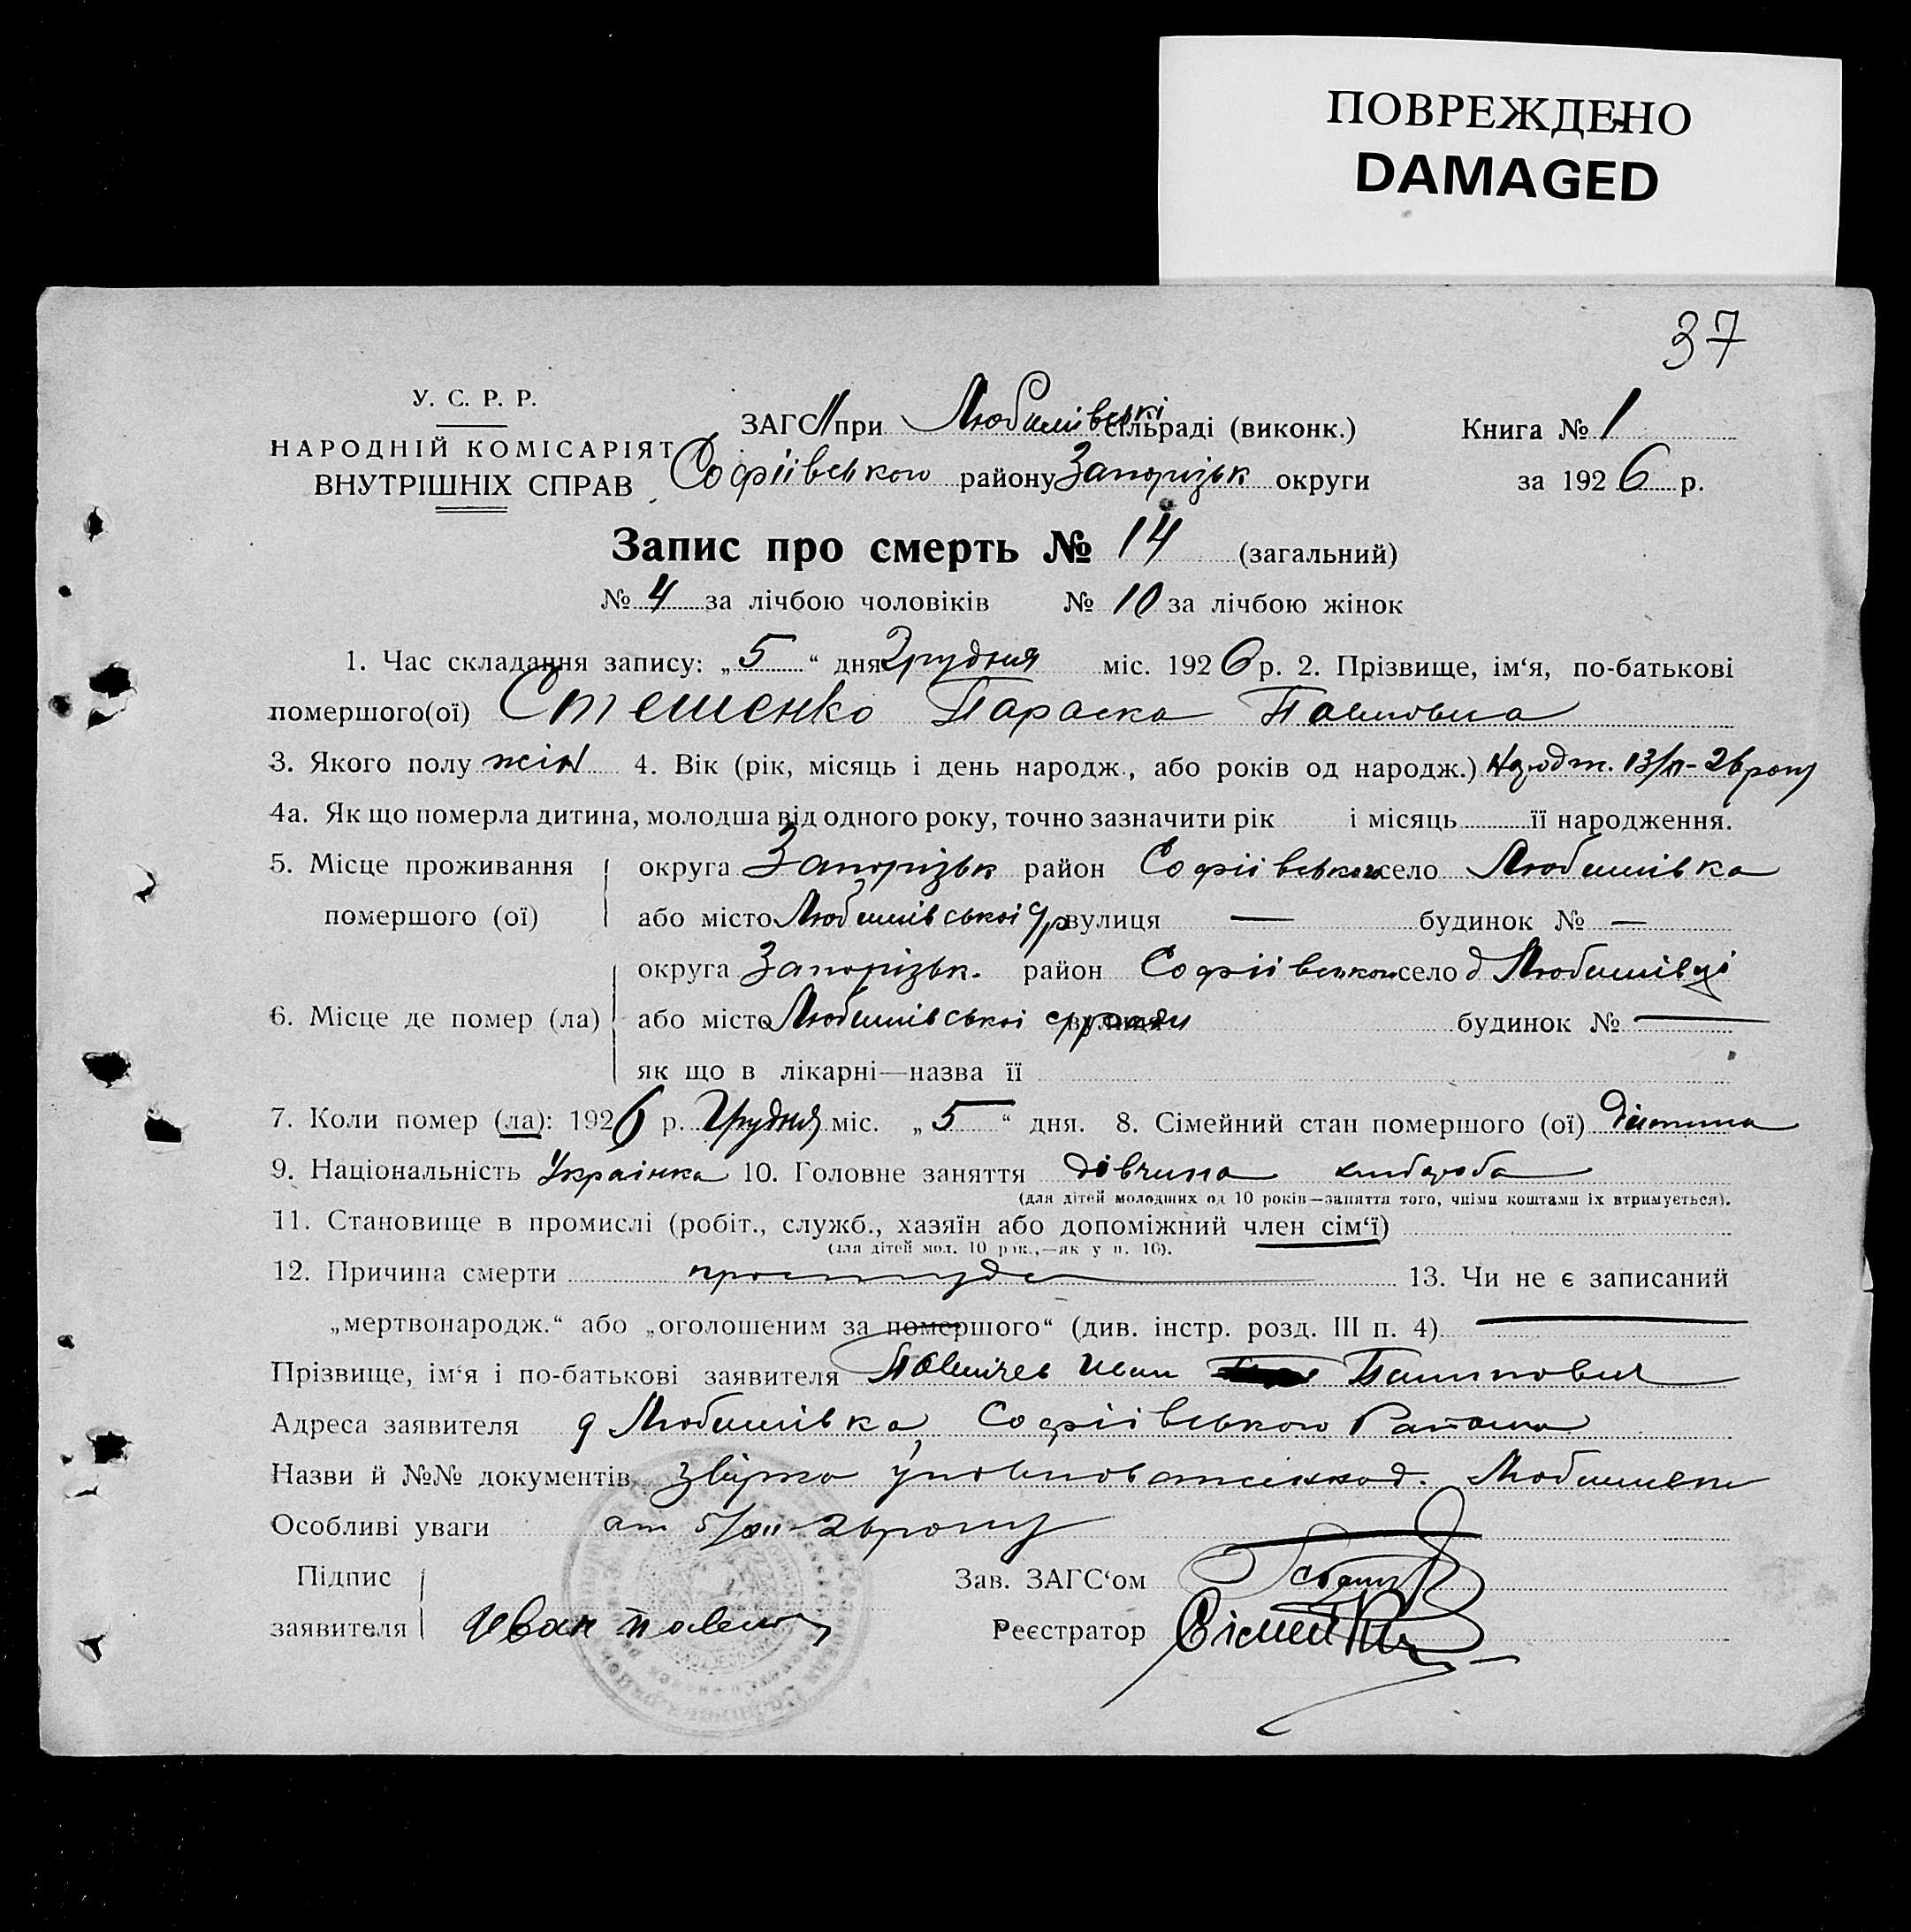 ПОВРЕЖДЕНО
DAMAGED
37
У. С. Р. Р.
НАРОДНІЙ КОМІСАРІЯТ
ВНУТРІШНІХ СПРАВ
ЗАГС при Любимівські сільраді (виконк.)
Книга № 1
Софіівського району Запорізьк округи
за 1926 р.
Запис про смерть № 14 (загальний)
№ 4 за лічбою чоловіків № 10 за лічбою жінок
1. Час складання запису: „5“ дня Грудня міс. 1926 р. 2. Прізвище, ім‘я, по-батькові
помершого(ої) Стешенко Параска Павловна
3. Якого полу жін 4. Вік (рік, місяць і день народж., або років од народж.) 13/ - 26 року
4а. Як що померла дитина, молодша від одного року, точно зазначити рік і місяць її народження.
5. Місце проживання помершого (ої)
округа Запорізьк район Софіівського село Любимівка
або місто Любимівськоі с/р вулиця — будинок № —
6. Місце де помер (ла)
округа Запорізьк. район Софіівського село д Любимівці
або місто Любимівськоі вулиця будинок № —
як що в лікарні—назва її
7. Коли помер (ла): 1926 р. Грудня міс. „5“ дня. 8. Сімейний стан помершого (ої) дитина
9. Національність Украінка 10. Головне заняття дівчина хлібороба
(для дітей молодших од 10 років—заняття того, чиїми коштами їх втримується).
11. Становище в промислі (робіт., служб., хазяїн або допоміжний член сім‘ї)
(для дітей мол. 10 рок.,—як у п. 10).
12. Причина смерти простуда 13. Чи не є записаний
„мертвонародж.“ або „оголошеним за помершого“ (див. інстр. розд. III п. 4) —
Прізвище, ім‘я і по-батькові заявителя Иван
Адреса заявителя д Любимівка, Софіівського Району
Назви й №№ документів д.
Особливі уваги от 5/XII - 26 року
Підпис заявителя Иван
Зав. ЗАГС‘ом
Реєстратор